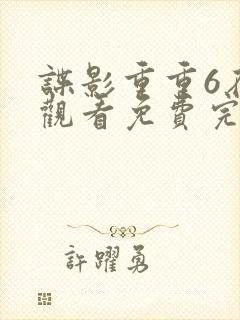 諜影重重6在
觀看免費完
許躍勇